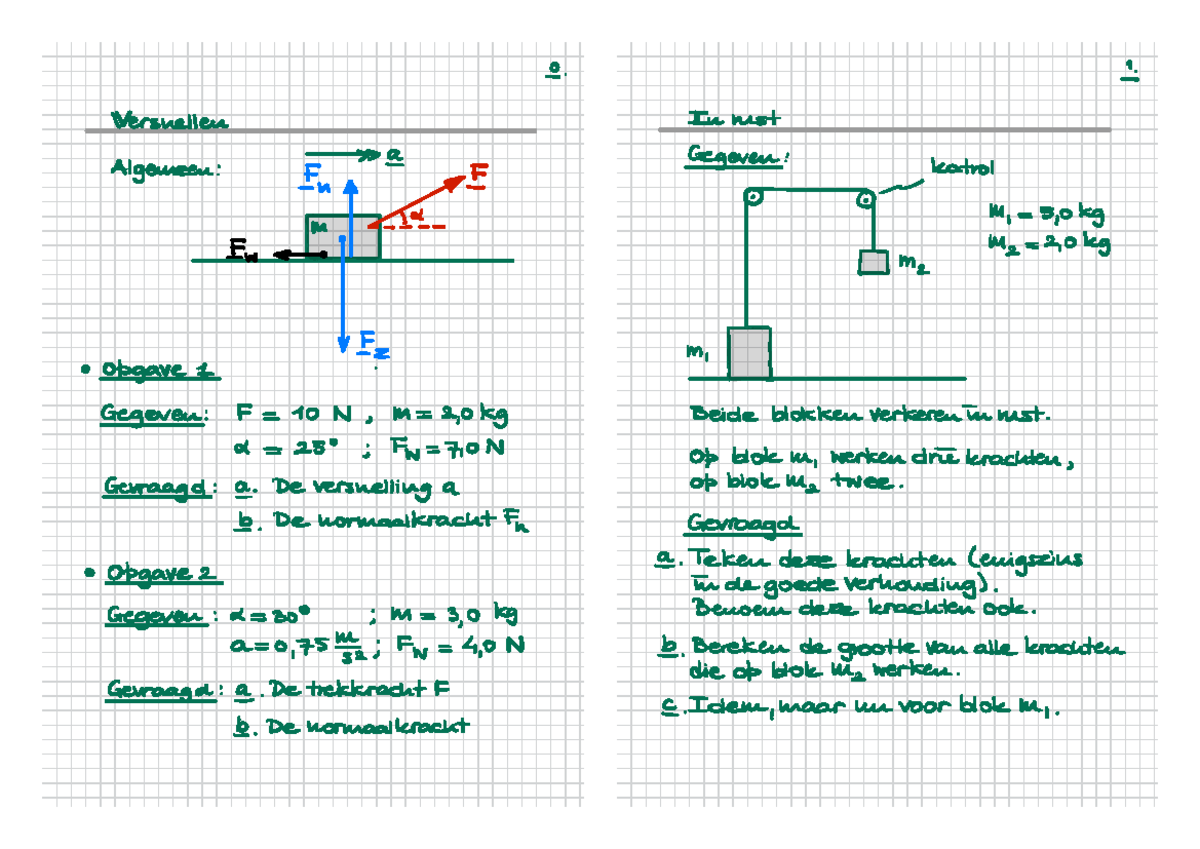 0.
Versnellen
Algemeen:
a
Fn
F
α
m
Fw
Fz
• Opgave 1
Gegeven: F = 10 N ; m = 2,0 kg
α = 25° ; Fw = 7,0 N
Gevraagd: a. De versnelling a
b. De normaalkracht Fn
• Opgave 2
Gegeven: α = 30° ; m = 3,0 kg
a = 0,75 m/s² ; Fw = 4,0 N
Gevraagd: a. De trekkracht F
b. De normaalkracht
1.
In rust
Gegeven:
katrol
m₁ = 5,0 kg
m₂ = 2,0 kg
m₂
m₁
Beide blokken verkeren in rust.
Op blok m₁ werken drie krachten,
op blok m₂ twee.
Gevraagd
a. Teken deze krachten (enigszins
in de goede verhouding).
Benoem deze krachten ook.
b. Bereken de grootte van alle krachten
die op blok m₂ werken.
c. Idem, maar nu voor blok m₁.